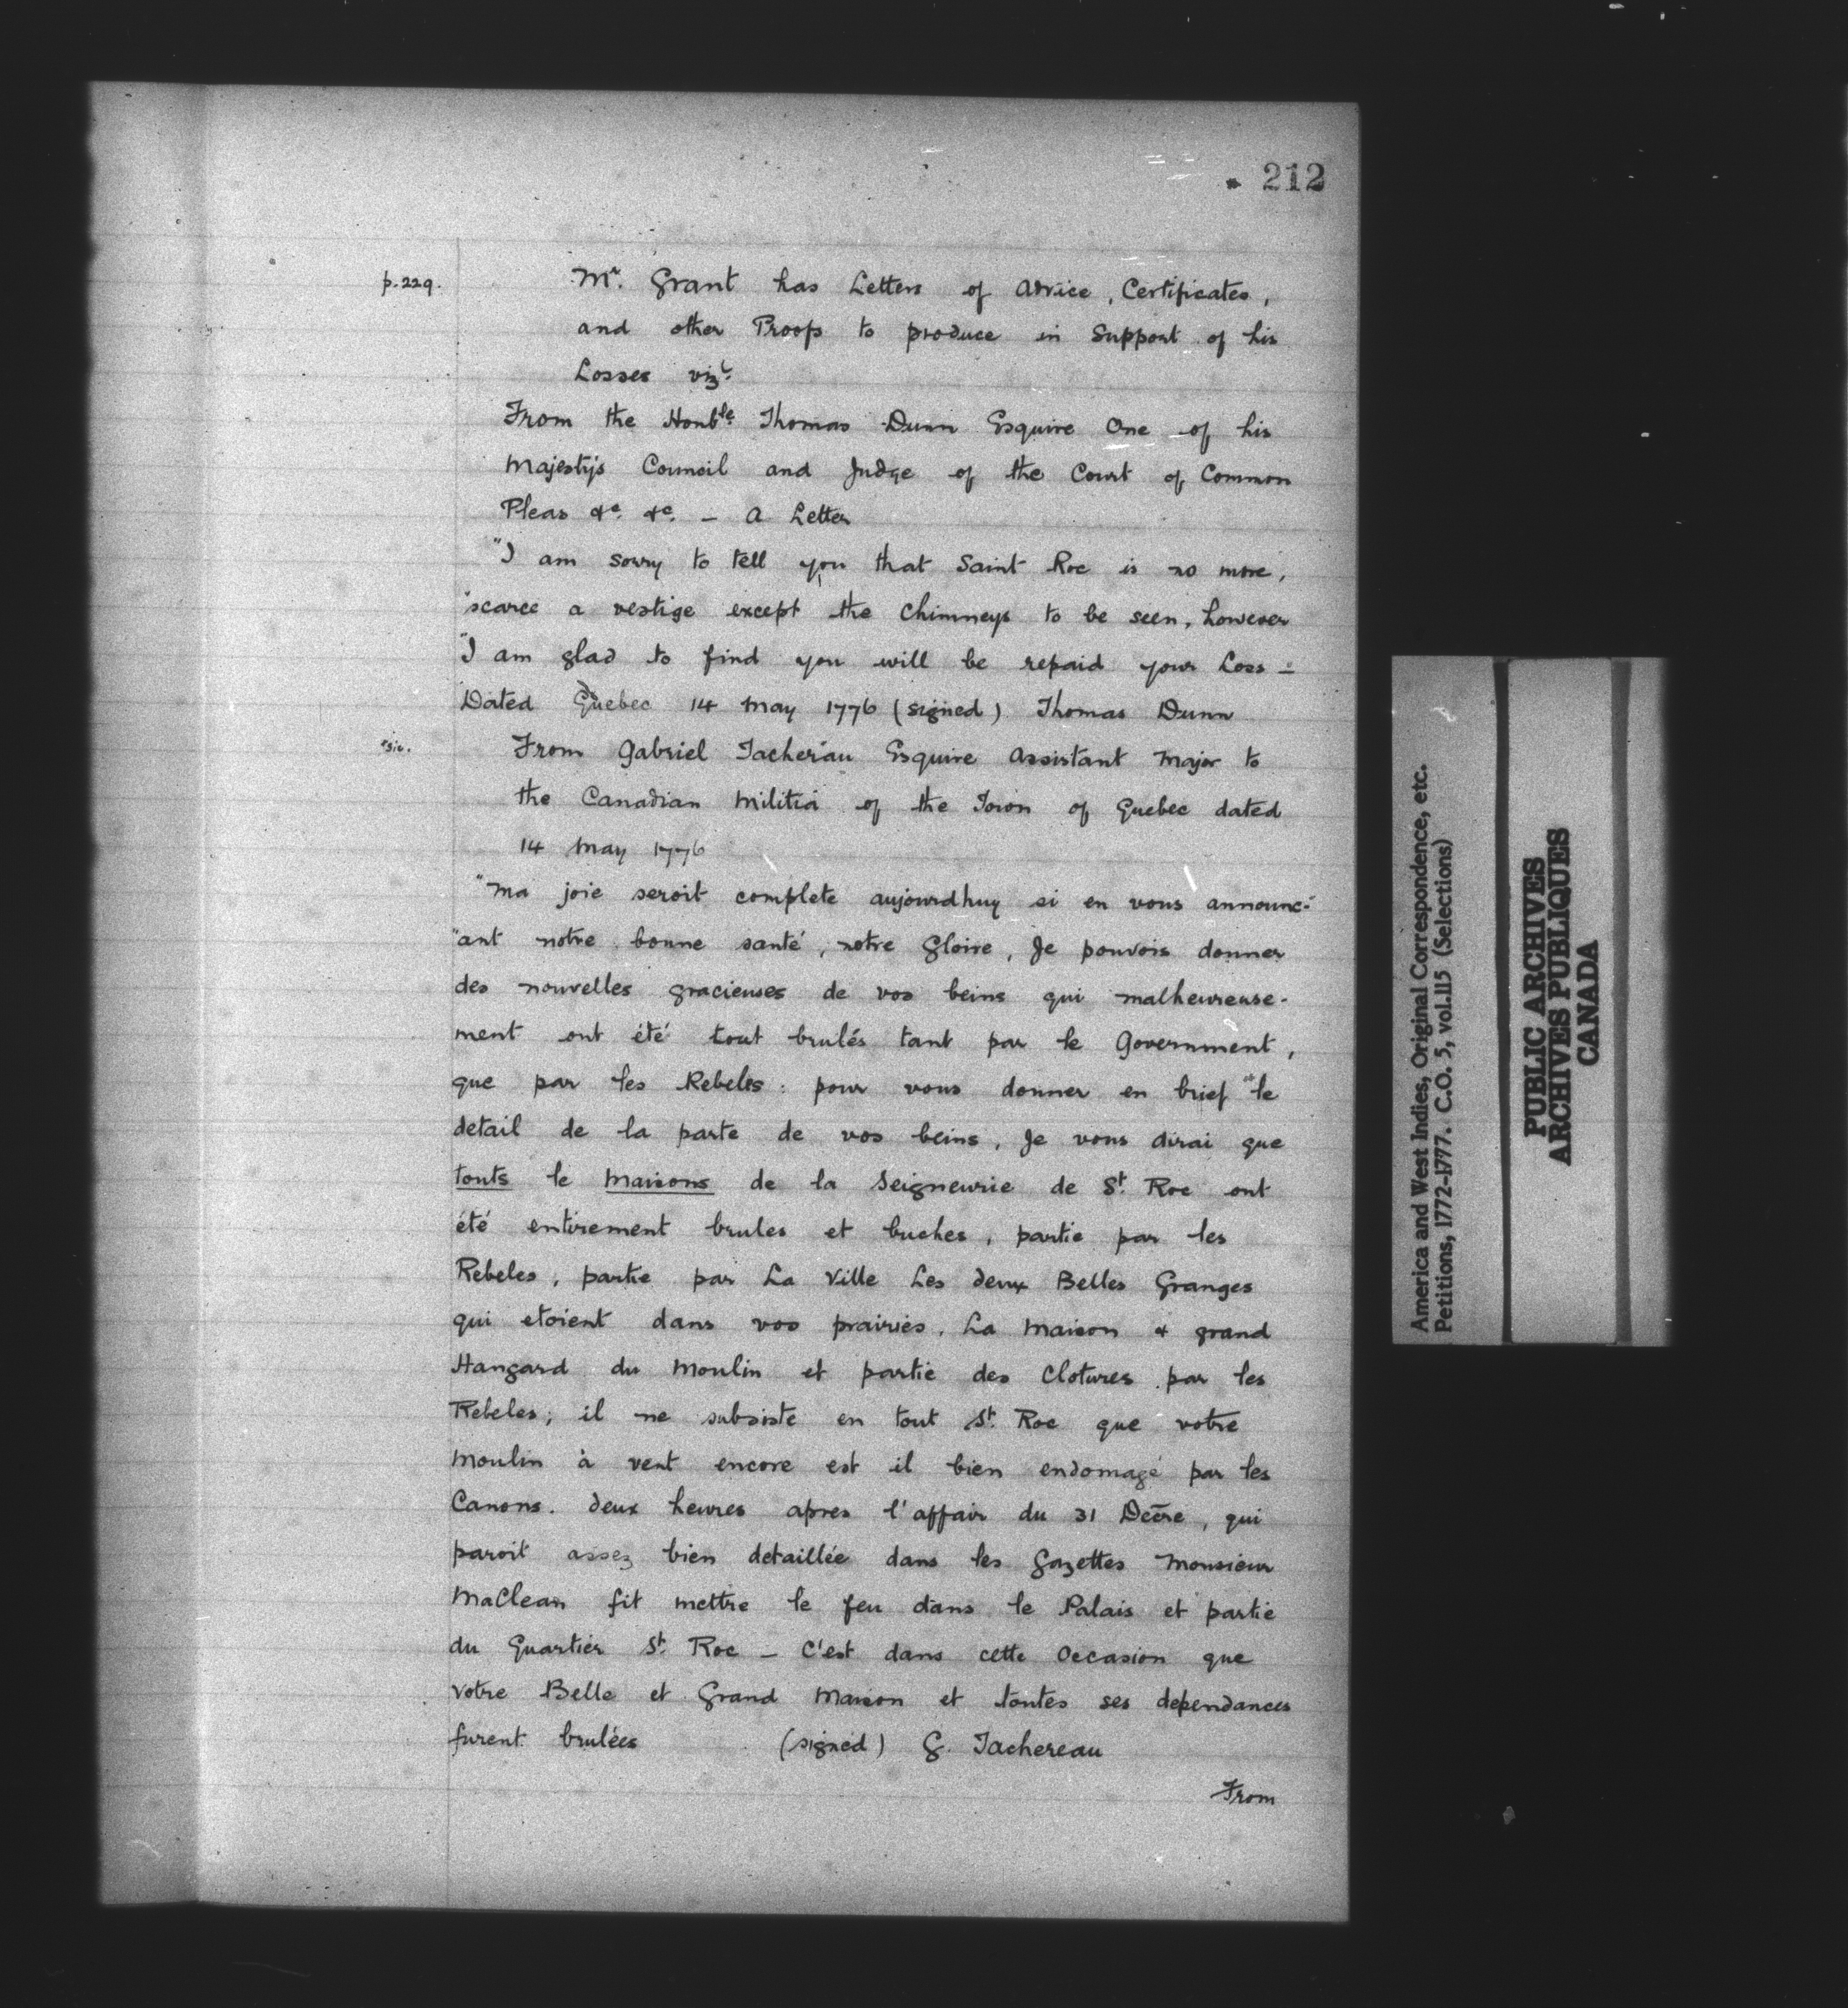 212
p. 229.
Mr. Grant has Letters of advice, Certificates,
and other Proofs to produce in Support of his
Losses vizt.
From the Honble Thomas Dunn Esquire One of his
Majesty's Council and Judge of the Court of Common
Pleas &c. &c. – a Letter
"I am sorry to tell you that Saint Roc is no more,
"scarce a vestige except the Chimneys to be seen, however
"I am glad to find you will be repaid your Loss –
Dated Quebec 14 May 1776 (signed) Thomas Dunn
"sic.
From Gabriel Tacherau Esquire Assistant Major to
the Canadian Militia of the Town of Quebec dated
14 May 1776
"Ma joie seroit complete aujourdhuy si en vous announc-
"ant notre bonne santé, notre Gloire, Je pouvois donner
des nouvelles gracieuses de vos beins qui malheureuse-
ment ont été tout brulés tant par le Government,
que par les Rebeles: pour vous donner en brief le
detail de la parte de vos beins, Je vous dirai que
touts le maisons de la Seigneurie de St. Roc ont
été entirement brules et buches, partie par les
Rebeles, partie par La Ville Les deux Belles Granges
qui etoient dans vos prairies, La Maison & grand
Hangard du Moulin et partie des Clotures par les
Rebeles; il ne subsiste en tout St. Roc que votre
Moulin à vent encore est il bien endomagé par les
Canons. deux heures apres l'affair du 31 Decre, qui
paroit assez bien detaillée dans les Gazettes Monsieur
MaClean fit mettre le feu dans le Palais et partie
du Quartier St. Roc – C'est dans cette Occasion que
votre Belle et Grand Maison et toutes ses dependances
furent brulées (signed) G. Tachereau
From
America and West Indies, Original Correspondence, etc.
Petitions, 1772-1777. C.O. 5, vol.115 (Selections)
PUBLIC ARCHIVES
ARCHIVES PUBLIQUES
CANADA